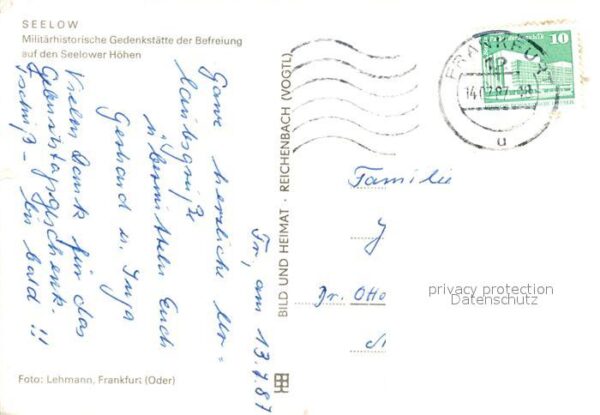 SEELOW
Militärhistorische Gedenkstätte der Befreiung
auf den Seelower Höhen
Fr, am 13.7.87
Ganz herzliche Ur-
laubsgrüße
übermitteln Euch
Gerhard u. Inga
Vielen Dank für das
Geburtstagsgeschenk.
Tschüß – bis bald !!
Foto: Lehmann, Frankfurt (Oder)
BILD UND HEIMAT · REICHENBACH (VOGTL)
FRANKFURT
14.07.87
u
10
Familie
J
Dr. Otto
privacy protection
Datenschutz